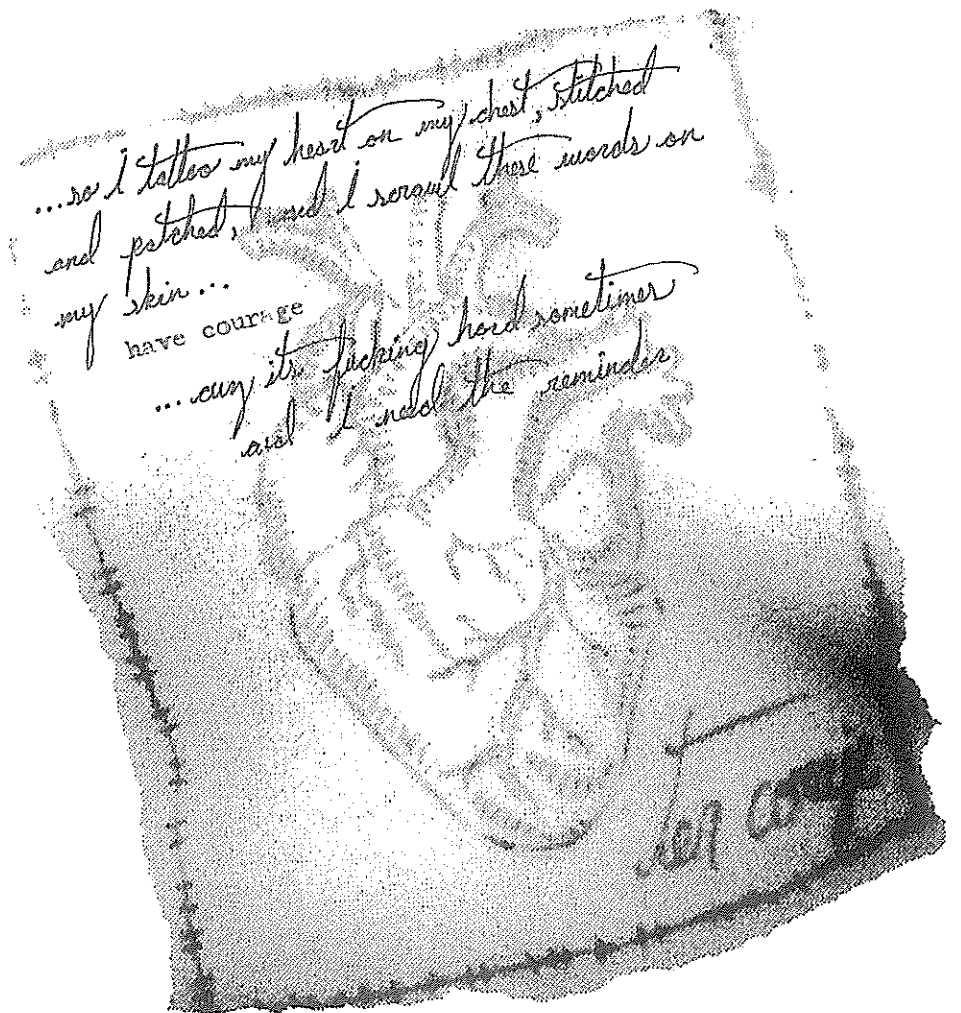 ...so I tattoo my heart on my chest, stitched
and patched, and I scrawl these words on
my skin...
have courage
...cuz its fucking hard sometimes
and I need the reminder
Ten